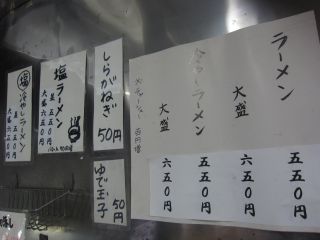 ラーメン
大盛
冷やしラーメン
大盛
チャーシュー 百円増
五五〇円
六五〇円
五五〇円
六五〇円
しらがねぎ
50円
ゆで玉子
50円
塩ラーメン
並 五五〇円
大盛 六五〇円
塩
冷やしラーメン
並 五五〇円
大盛 六五〇円